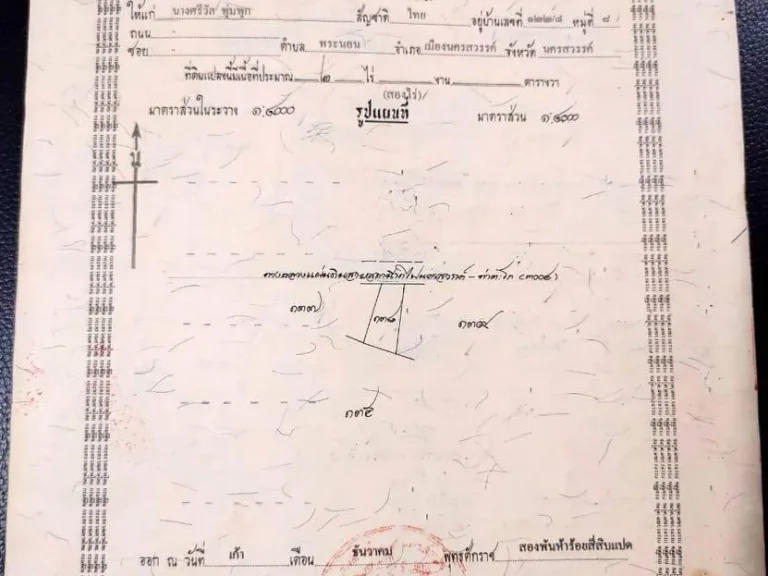 ให้แก่ นางศรีวัล พุ่มพุก สัญชาติ ไทย อยู่บ้านเลขที่ ๑๒๒/๘ หมู่ที่ ๘
ถนน -
ซอย - ตำบล พระนอน อำเภอ เมืองนครสวรรค์ จังหวัด นครสวรรค์
ที่ดินแปลงนี้มีเนื้อที่ประมาณ ๒ ไร่ - งาน - ตารางวา
(สองไร่)/
มาตราส่วนในระวาง ๑:๔๐๐๐ รูปแผนที่ มาตราส่วน ๑:๔๐๐๐
น
ทางหลวงแผ่นดินสาย - ท่าตะโก (๓๐๐๔)
๑๓๗ ๑๓๘ ๑๓๙
ออก ณ วันที่ เก้า เดือน ธันวาคม พุทธศักราช สองพันห้าร้อยสี่สิบแปด